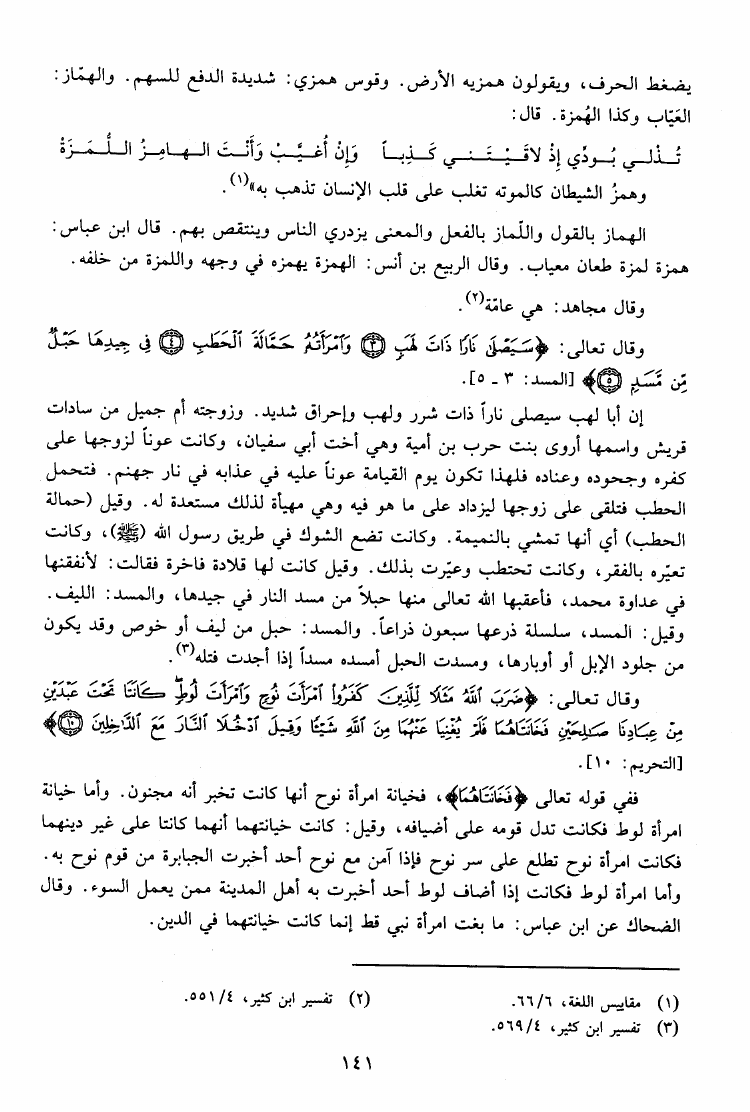 يضغط الحرف، ويقولون همزيه الأرض. وقوس همزي: شديدة الدفع للسهم. والهمّاز:
العَيّاب وكذا الهُمزة. قال:
تُـذلـي بُـودِّي إذْ لاقَـيْـتَـنـي كَـذِبـاً وَإِنْ أُغـيَّـبْ وَأَنْـتَ الـهـامِـزُ الـلُّـمَـزَهْ
وهمزُ الشيطان كالموته تغلب على قلب الإنسان تذهب به»(١).
الهماز بالقول واللّماز بالفعل والمعنى يزدري الناس وينتقص بهم. قال ابن عباس:
همزة لمزة طعان معياب. وقال الربيع بن أنس: الهمزة يهمزه في وجهه واللمزة من خلفه.
وقال مجاهد: هي عامّة(٢).
وقال تعالى: ﴿سَيَصْلَىٰ نَارًا ذَاتَ لَهَبٍ ﴿٣﴾ وَٱمْرَأَتُهُۥ حَمَّالَةَ ٱلْحَطَبِ ﴿٤﴾ فِى جِيدِهَا حَبْلٌ
مِّن مَّسَدٍۭ ﴿٥﴾﴾ [المسد: ٣ ـ ٥].
إن أبا لهب سيصلى ناراً ذات شرر ولهب وإحراق شديد. وزوجته أم جميل من سادات
قريش واسمها أروى بنت حرب بن أمية وهي أخت أبي سفيان، وكانت عوناً لزوجها على
كفره وجحوده وعناده فلهذا تكون يوم القيامة عوناً عليه في عذابه في نار جهنم. فتحمل
الحطب فتلقى على زوجها ليزداد على ما هو فيه وهي مهيأة لذلك مستعدة له. وقيل (حمالة
الحطب) أي أنها تمشي بالنميمة. وكانت تضع الشوك في طريق رسول الله (ﷺ)، وكانت
تعيّره بالفقر، وكانت تحتطب وعيّرت بذلك. وقيل كانت لها قلادة فاخرة فقالت: لأنفقنها
في عداوة محمد، فأعقبها الله تعالى منها حبلاً من مسد النار في جيدها، والمسد: الليف.
وقيل: المسد، سلسلة ذرعها سبعون ذراعاً. والمسد: حبل من ليف أو خوص وقد يكون
من جلود الإبل أو أوبارها، ومسدت الحبل أمسده مسداً إذا أجدت فتله(٣).
وقال تعالى: ﴿ضَرَبَ ٱللَّهُ مَثَلًا لِّلَّذِينَ كَفَرُوا۟ ٱمْرَأَتَ نُوحٍ وَٱمْرَأَتَ لُوطٍ ۖ كَانَتَا تَحْتَ عَبْدَيْنِ
مِنْ عِبَادِنَا صَـٰلِحَيْنِ فَخَانَتَاهُمَا فَلَمْ يُغْنِيَا عَنْهُمَا مِنَ ٱللَّهِ شَيْـًٔا وَقِيلَ ٱدْخُلَا ٱلنَّارَ مَعَ ٱلدَّٰخِلِينَ ﴿١٠﴾﴾
[التحريم: ١٠].
ففي قوله تعالى ﴿فَخَانَتَاهُمَا﴾، فخيانة امرأة نوح أنها كانت تخبر أنه مجنون. وأما خيانة
امرأة لوط فكانت تدل قومه على أضيافه، وقيل: كانت خيانتهما أنهما كانتا على غير دينهما
فكانت امرأة نوح تطلع على سر نوح فإذا آمن مع نوح أحد أخبرت الجبابرة من قوم نوح به.
وأما امرأة لوط فكانت إذا أضاف لوط أحد أخبرت به أهل المدينة ممن يعمل السوء. وقال
الضحاك عن ابن عباس: ما بغت امرأة نبي قط إنما كانت خيانتهما في الدين.
(١) مقاييس اللغة، ٦٦/٦. (٢) تفسير ابن كثير، ٥٥١/٤.
(٣) تفسير ابن كثير، ٥٦٩/٤.
١٤١